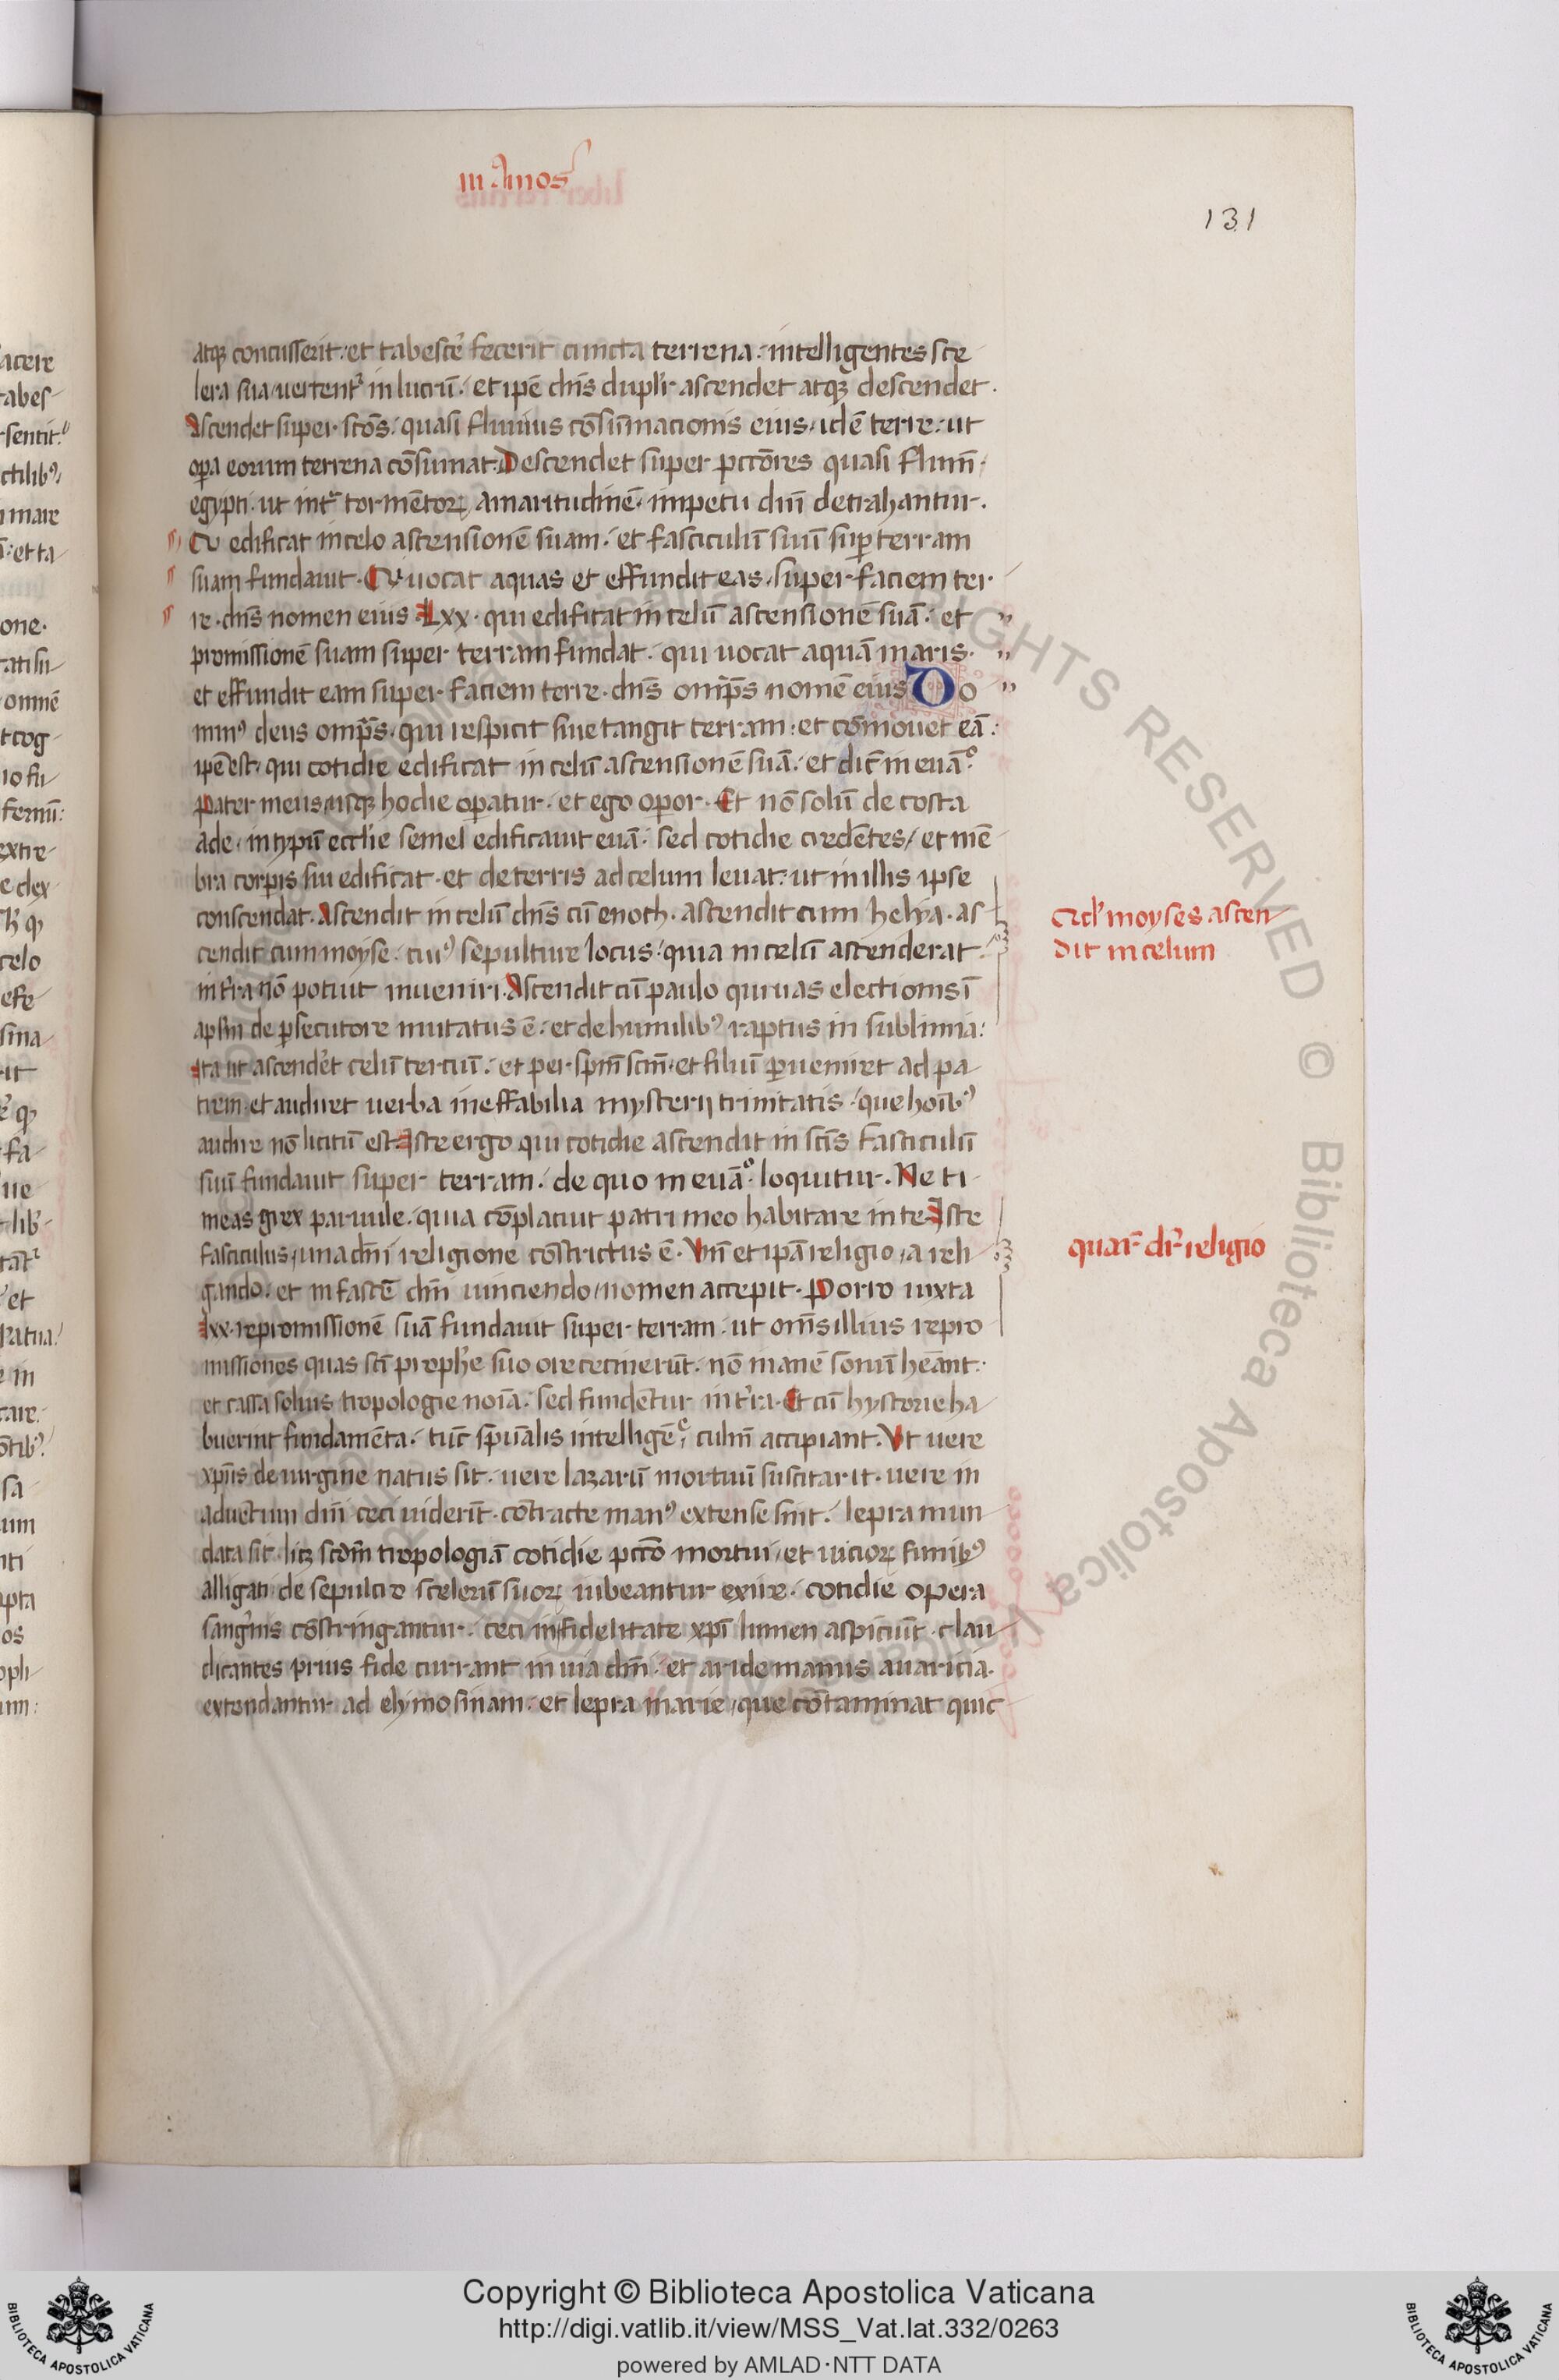 in Amos
131
atqꝫ concusserit. et tabescẽ fecerit cuncta terrena. intelligentes sce
lera sua uertentʳ in luctũ. et ipẽ dñs duplr̃ ascendet atqꝫ descendet.
Ascendet super scõs. quasi fluuius cõsũmacionis eius. idẽ terre. ut
opa eorum terrena cõsumat. Descendet super pctõres quasi flum̃
egypti. ut intʳ tormẽtoꝝ amaritudinẽ. impetu diñ detrahantur.
Qui edificat in celo ascensionẽ suam. et fasciculũ suũ suꝑ terram
suam fundauit. Qui uocat aquas et effundit eas super faciem ter
re. dñs nomen eius. Lxx. qui edificat in celũ ascensionẽ suã. et
promissionẽ suam super terram fundat. qui uocat aquã maris.
et effundit eam super faciem terre. dñs omp̃s nomẽ eius Do
minꝰ deus omp̃s. qui respicit siue tangit terram. et cõmouet eã.
ipẽ est. qui cotidie edificat in celũ ascensionẽ suã. et dic̃ in euã.º
Pater meus usqꝫ hodie oꝑatur. et ego oꝑor. Et nõ solũ de costa
ade. in typũ eccl̃ie semel edificauit euã. sed cotidie credẽtes / et mẽ
bra corꝑis sui edificat. et de terris ad celum leuat. ut in illis ipse
conscendat. Ascendit in celũ dñs cũ enoch. ascendit cum helya. as
cendit cum moyse. cuiꝰ sepulture locus. quia in celũ ascenderat
in tr̃a nõ potuit inueniri. Ascendit cũ paulo qui uas electionis ĩ
apl̃m de ꝑsecutore mutatus ẽ. et de humilibꝰ raptus in sublimia.
ita ut ascendet̃ celũ terciũ. et per sp̃m sc̃m. et filiũ ꝑueniret ad pa
trem. et audiret uerba ineffabilia mysterij trinitatis. que hoĩbꝰ
audire nõ licitũ est. Iste ergo qui cotidie ascendit in sc̃is fasciculũ
suũ fundauit super terram. de quo in euã.º loquitur. Ne ti
meas grex paruule. quia cõplacuit patri meo habitare in te. Iste
fasciculus / una dñi religione cõstrictus ẽ. Vñ et ipã religio / a reli
gando. et in fascẽ dñi uinciendo / nomen accepit. Porro iuxta
Lxx. repromissionẽ suã fundauit super terram. ut om̃s illius repro
missiones quas sc̃i proph̃e suo ore cecinerũt. nõ inanẽ sonũ heãnt.
et cassa solius tropologie noĩa. sed fundẽtur in tr̃a. Et cũ hystorie ha
buerint fundamẽta. tũc sp̃ualis intelligẽᵉ, culm̃ accipiant. Vt uere
xp̃us de uirgine natus sit. uere lazarũ mortuũ suscitarit. uere in
aduẽtum dñi ceci uiderũt. cõtracte manꝰ extense sint. lepra mun
data sit. licꝫ sc̃dm tropologiã cotidie pcc̃o mortui / et uicioꝝ funibꝰ
alligati de sepulcro scelerũ suoꝝ iubeantur exire. cotidie opera
sang̃nis cõstringantur. ceci infidelitate xp̃i lumen aspiciũt. clau
dicantes prius fide currant in uia dñi. et aride manus auaricia.
extendantur ad elymosinam. et lepra marie / que cõtaminat quic
moyses ascen
dit in celum
quar̃ dr̃ religio
Copyright © Biblioteca Apostolica Vaticana
http://digi.vatlib.it/view/MSS_Vat.lat.332/0263
powered by AMLAD·NTT DATA